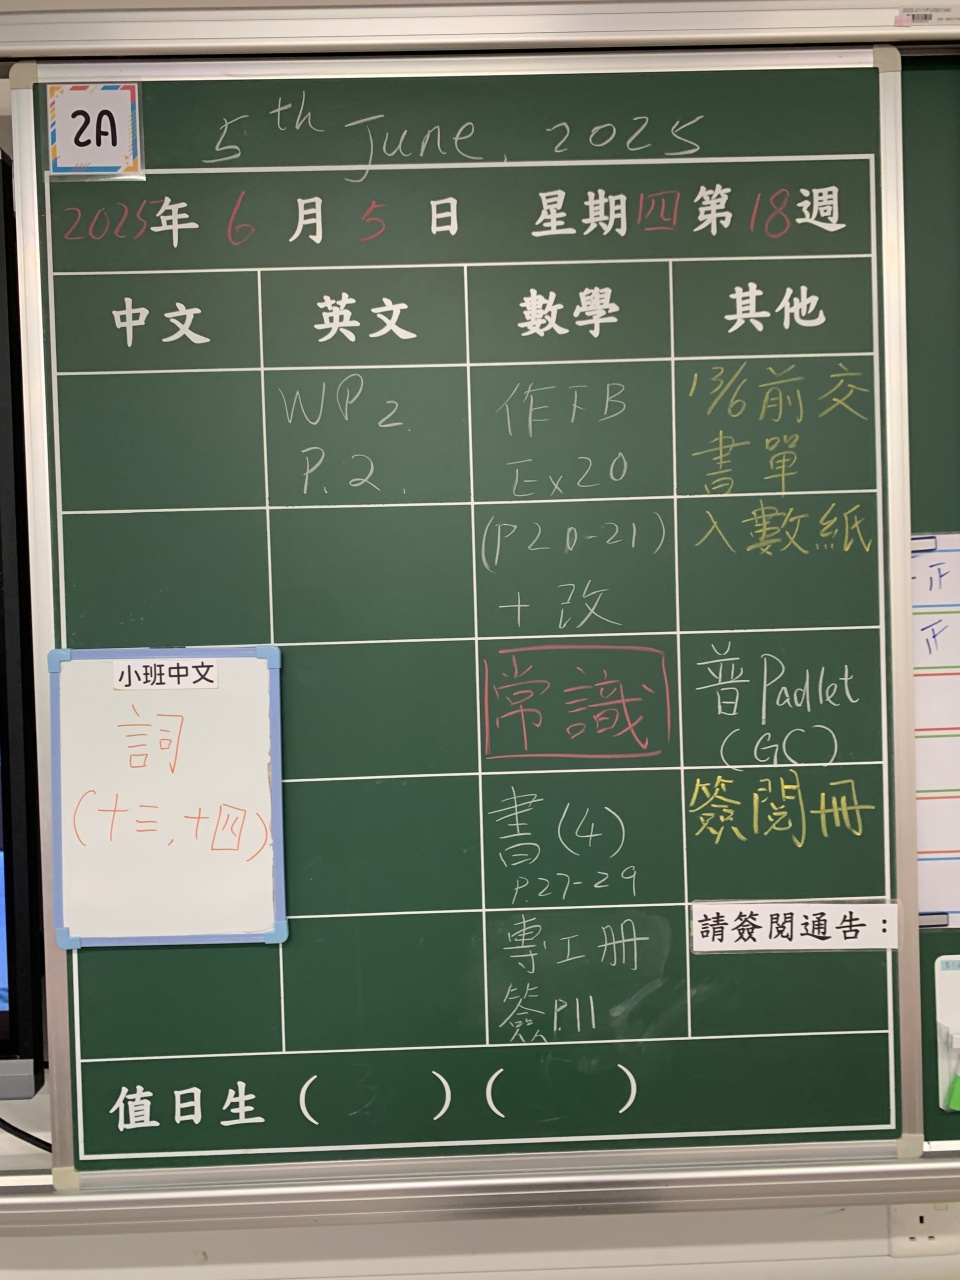 2A
5th June, 2025
2025年 6 月 5 日 星期四 第18週
中文 英文 數學 其他
WP2
P.2.
作下B
Ex20
(P20-21)
+改
13/6前交
書單
入數紙
小班中文
詞
(十三,十四)
常識
書(4)
P.27-29
專工冊
簽P.11
普Padlet
(GC)
簽閱冊
請簽閱通告：
值日生 ( ) ( )
正
正